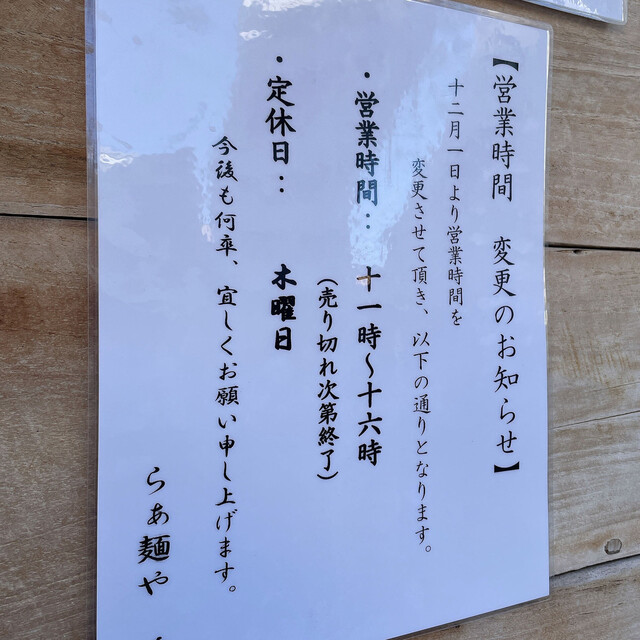 【営業時間　変更のお知らせ】
十二月一日より営業時間を
変更させて頂き、以下の通りとなります。
・営業時間：　十一時～十六時
（売り切れ次第終了）
・定休日：　木曜日
今後も何卒、宜しくお願い申し上げます。
らぁ麺や